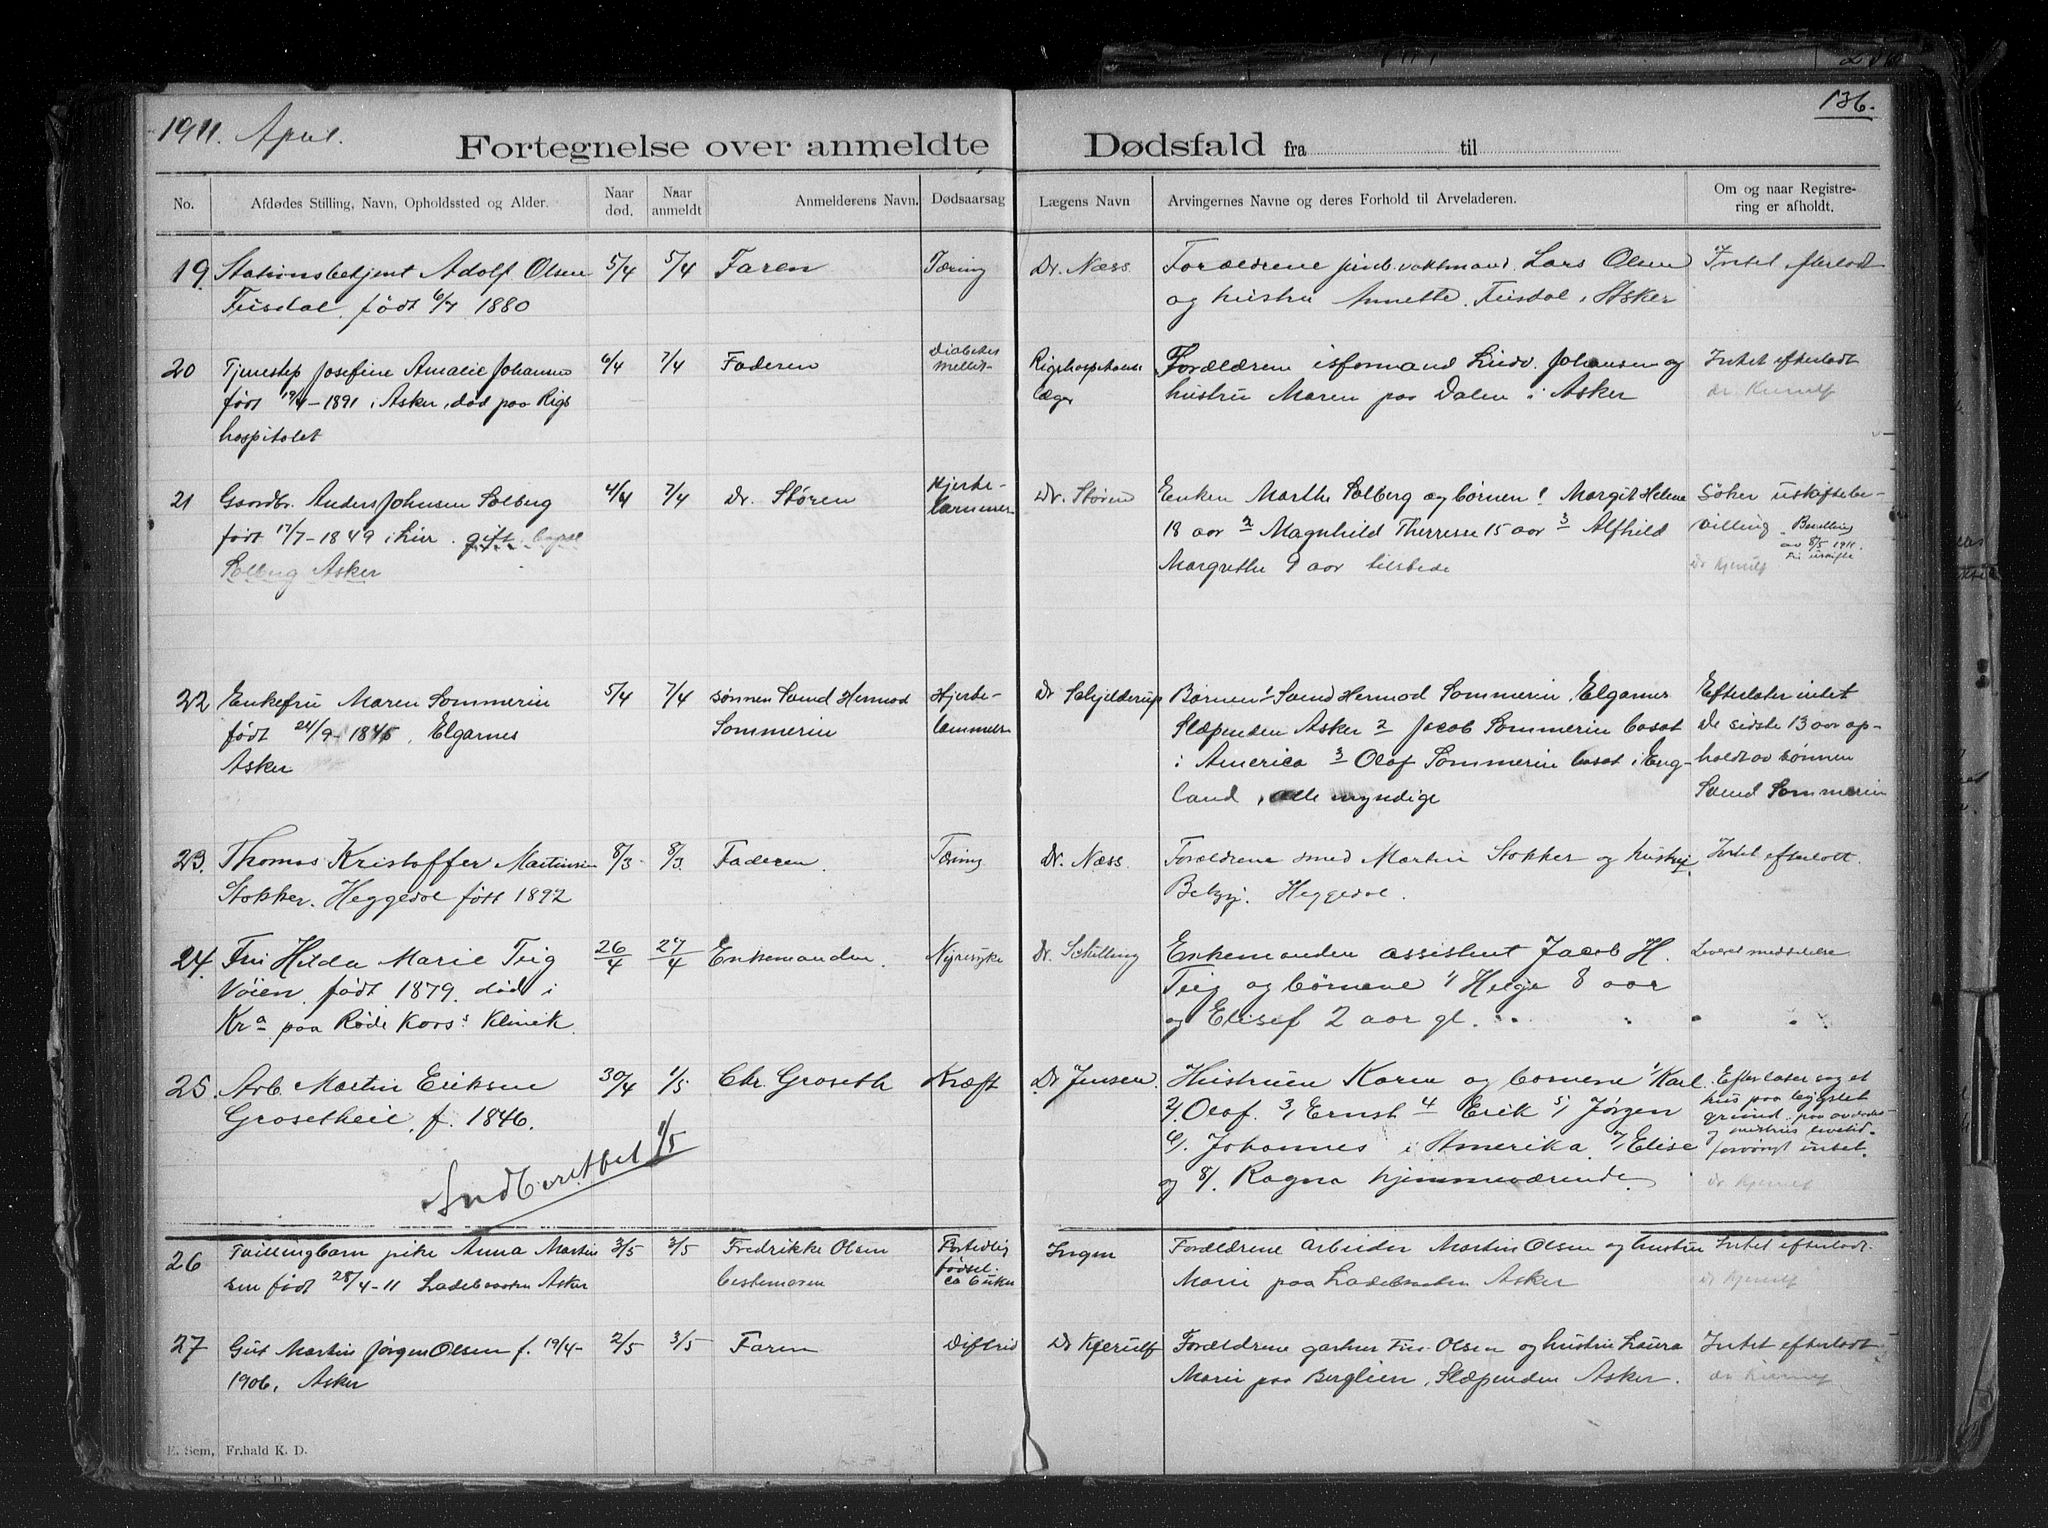 1911. April.
136.
Fortegnelse over anmeldte Dødsfald fra til
No.
Afdødes Stilling, Navn, Opholdssted og Alder.
Naar død.
Naar anmeldt
Anmelderens Navn.
Dødsaarsag
Lægens Navn
Arvingernes Navne og deres Forhold til Arveladeren.
Om og naar Registre-
ring er afholdt.
19. Stationsbetjent Adolf Olsen 5/4 5/4 Faren Tæring Dr. Næss. Forældrene Lars Olsen Intet efterladt
født 6/4 1880 og hustru Annette, i Asker
20 Josefine Amalie Johansen 6/4 7/4 Faderen Diabetes Rigshospitalets Forældrene isformand Ludv. Johansen og Intet efterladt
født 19/4-1891 i Asker, død paa Rigs mellit- læger hustru Maren paa Dalen i Asker
hospitalet
21 Gaardbr. Anders Johnsen Solberg 4/4 7/4 Dr. Støren Hjerte- Dr. Støren Enken Marthe Solberg og børnene 1 Margit Helene Søker uskiftebe-
født 17/7-1849 i Lier. gift. lammelse 18 aar 2 Magnhild Therese 15 aar 3 Alfhild villing. Bevilling
av 8/5 1911.
Solberg Asker Margrethe 9 aar tilstede Dr Kjerulf
22 Enkefru Maren Sommerin 5/4 7/4 sønnen Svend Hermod Hjerte- Dr Schjelderup Børnene 1 Svend Hermod Sommerin, Elgarnes Efterlater intet
født 24/9-1845, Elgarnes Sommerin lammelse Slæpenden Asker 2 Jacob Sommerin bosat De sidste 13 aar op-
Asker i America 3 Olaf Sommerin bosat i Eng- holdt av sønnen
land, alle myndige Svend Sommerin
23. Thomas Kristoffer Martinsen 8/3 8/3 Faderen. Tæring Dr. Næss. Forældrene smed Martin Stokker og hustru Intet efterladt.
Stokker. Heggedal født 1892 Heggedal.
24. Fru Hilda Marie Teig 26/4 27/4 Enkemanden. Nyresyke Dr. Schilling Enkemanden assistent Jacob H. Levert meddelelse
Vøien. født 1879. død i Teig og børnene 1/ Helge 8 aar
Kra paa Røde Kors's Klinik. og Elisef 2 aar gl.
25. Arb. Martin Eriksen 30/4 1/5 Chr. Groseth Kræft Dr Jensen. Hustruen Karen og børnene 1 Karl Efterlater seg et
Grosetheie, f. 1846. 2/. Olaf. 3/ Ernst 4 Erik 5/ Jørgen hus paa bygslet
grund. paa avdødes
6/. Johannes i Amerika. 7/ Elise og hustrus levetid.
forøvrigt intet.
Indberettet 1/5 og 8/. Ragna hjemmeværende. Dr Kjerulf
26 Tvillingbarn pike Anna Martin 3/5 3/5 Fredrikke Olsen Fortidlig Ingen Forældrene arbeider Martin Olsen og hustru Intet efterladt.
sen født 28/4-11 Asker bestemoren fødsel. Marie paa Asker Dr Kjerulf
ca 6 uker
27 Gut Martin Jørgen Olsen f. 19/4- 2/5 3/5 Faren Difterid Dr Kjerulf Forældrene gartner Olsen og hustru Laura Intet efterladt
1906, Asker Marie paa Berglien, Slæpenden Asker. Dr Kjerulf
E. Sem, Fr.hald K. D.